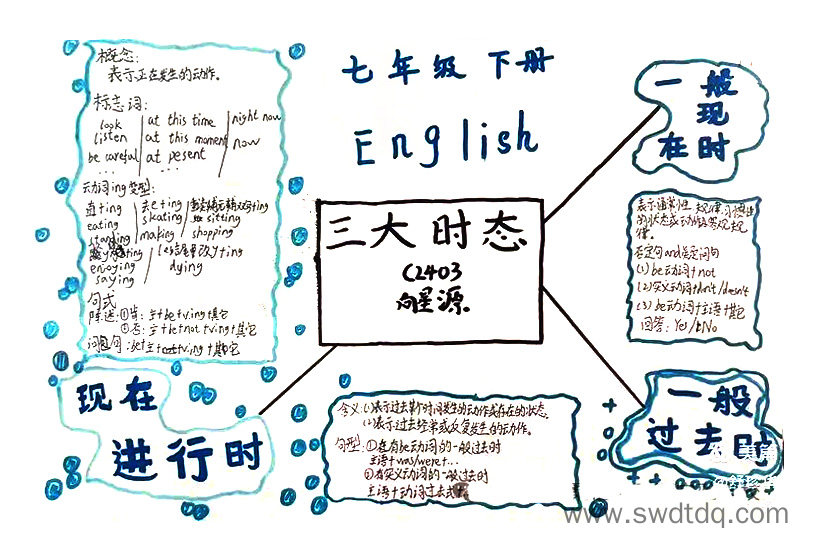 七年级 下册
English
三大时态
C2403
向星源
概念:
表示正在发生的动作。
标志词:
look
listen
be careful
...
at this time
at this moment
at pesent
...
right now
now
动词ing类型:
直+ing
eating
standing
enjoying
saying
去e+ing
skating
making
sitting
shopping
ie结尾变改y+ing
dying
句式
陈述:①肯:主+be+ving+其它
②否:主+be+not+ving+其它
现在
进行时
一般
现
在时
表示通常性、规律、习惯性
的状态或动作
律。
否定句and否定问句
(1)be动词+not
(2)实义动词+don't/doesn't
(3)be动词+主语+其它
回答:Yes/No
含义:(1)表示过去某个时间发生的动作或存在的状态.
(2)表示过去经常或反复发生的动作。
句型:①含有be动词的一般过去时
主语+was/were+...
②含实义动词的一般过去时
主语+动词过去式+
一般
过去时
www.swdtdq.com